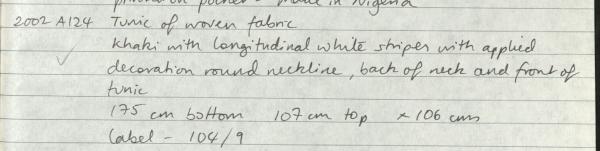 printed on pocket - made in Nigeria
2002 A124 Tunic of woven fabric
khaki with longitudinal white stripes with applied
decoration round neckline, back of neck and front of
tunic
175 cm bottom 107 cm top × 106 cms
label - 104/9